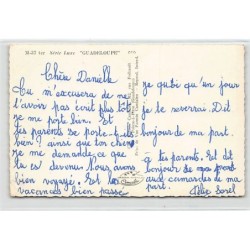 M-23 bis Série Luxe "GUADELOUPE"
Chère Danielle
Tu m'excusera de ne
t'avoir pas écrit plus tôt
je me porte bien. Et
tes parents se porte-t-il
bien? ainsi que ton chien
je me demande ce que
tu es devenue. Nous avons
bien voyagé. Et tes
vacances bien passé
je qu'un jour
je te reverrai. Dit
bonjour de ma part.
a tes parents. Et dit
bonjour de ma part aux
camarades de ma
part.
Sorel